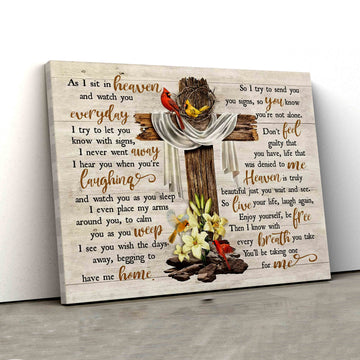 As I sit in heaven
and watch you
everyday
I try to let you
know with signs,
I never went away
I hear you when you're
laughing
and watch you as you sleep
I even place my arms
around you, to calm
you as you weep
I see you wish the days
away, begging to
have me home.
So I try to send you
you signs, so you know
you're not alone.
Don't feel
guilty that
you have, life that
was denied to me
Heaven is truly
beautiful just you wait and see.
So live your life, laugh again,
Enjoy yourself, be free
Then I know with
every breath you take
You'll be taking one
for me